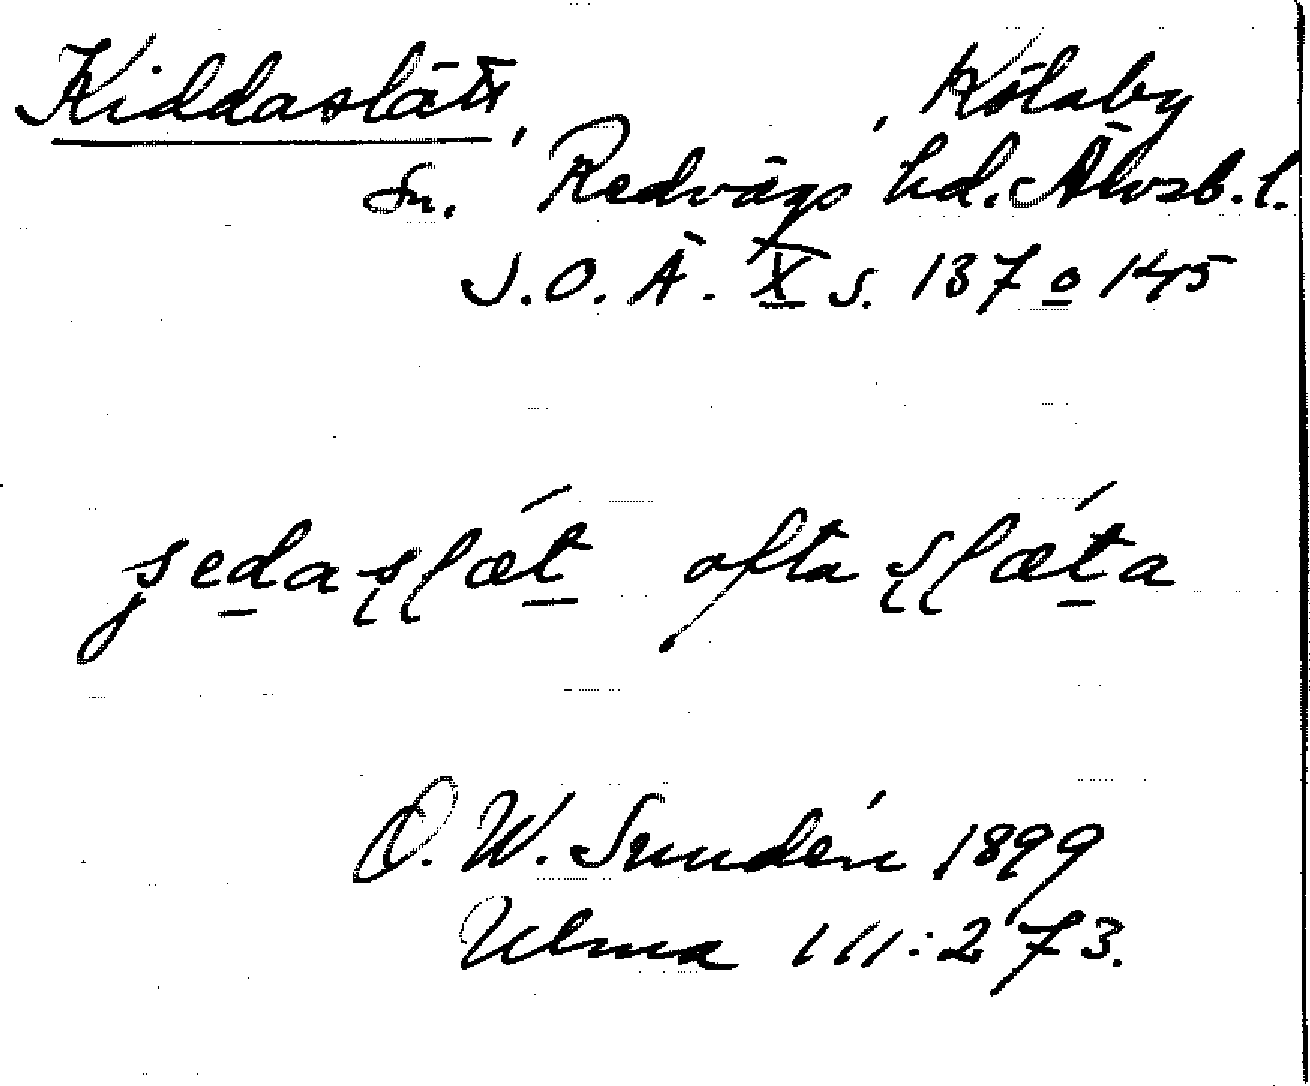 Kiddaslätt, , Kölaby
sn. Redvägs hd. Älvsb. l.
S.O.Ä. X s. 137 o 145
ofta
D. W. Sundén 1899
Ulma 111:273.